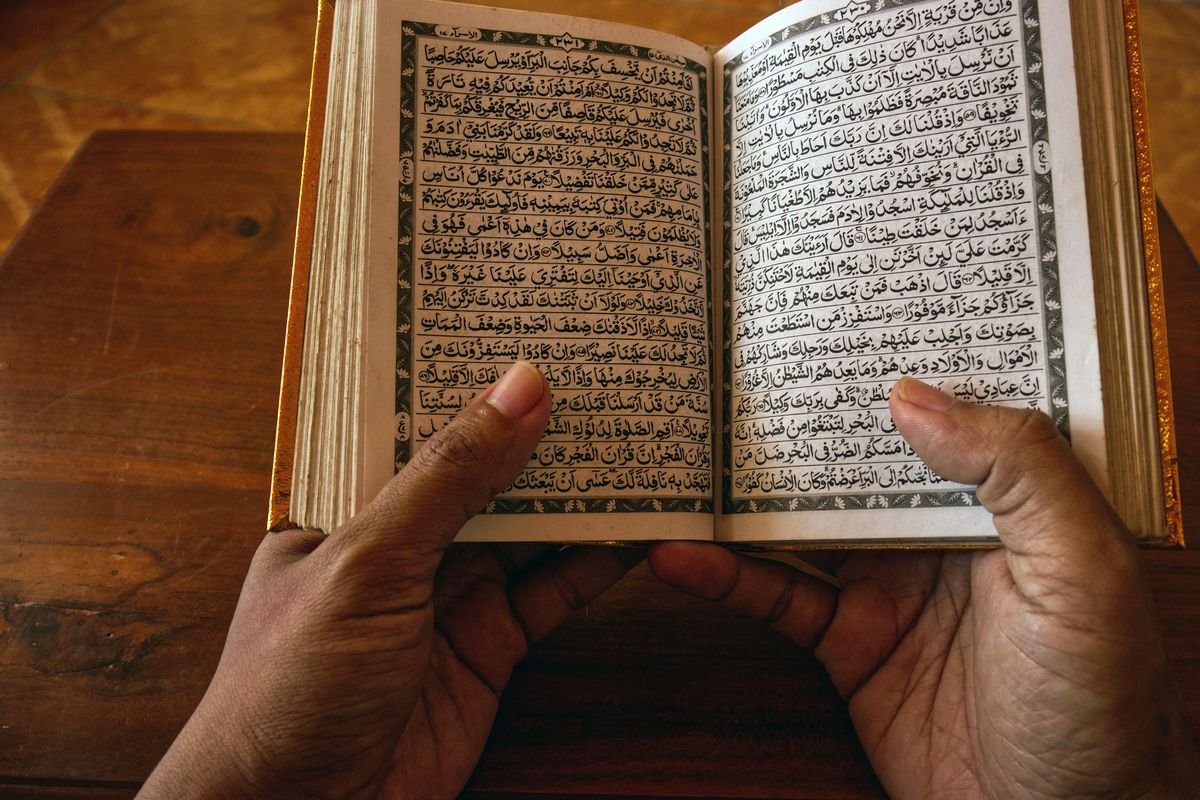 الأسراء ١٧
٢٣٠
وَاِنْ مِّنْ قَرْيَةٍ اِلَّا نَحْنُ مُهْلِكُوْهَا قَبْلَ يَوْمِ الْقِيٰمَةِ اَوْ مُعَذِّبُوْهَا
عَذَابًا شَدِيْدًا كَانَ ذٰلِكَ فِى الْكِتٰبِ مَسْطُوْرًا ٥٨ وَمَا مَنَعَنَا
اَنْ نُّرْسِلَ بِالْاٰيٰتِ اِلَّا اَنْ كَذَّبَ بِهَا الْاَوَّلُوْنَ وَاٰتَيْنَا
ثَمُوْدَ النَّاقَةَ مُبْصِرَةً فَظَلَمُوْا بِهَا وَمَا نُرْسِلُ بِالْاٰيٰتِ اِلَّا
تَخْوِيْفًا ٥٩ وَاِذْ قُلْنَا لَكَ اِنَّ رَبَّكَ اَحَاطَ بِالنَّاسِ وَمَا جَعَلْنَا
الرُّءْيَا الَّتِىْ اَرَيْنٰكَ اِلَّا فِتْنَةً لِّلنَّاسِ وَالشَّجَرَةَ الْمَلْعُوْنَةَ
فِى الْقُرْاٰنِ وَنُخَوِّفُهُمْ فَمَا يَزِيْدُهُمْ اِلَّا طُغْيَانًا كَبِيْرًا ٦٠
وَاِذْ قُلْنَا لِلْمَلٰٓئِكَةِ اسْجُدُوْا لِاٰدَمَ فَسَجَدُوْا اِلَّا اِبْلِيْسَ قَالَ
ءَاَسْجُدُ لِمَنْ خَلَقْتَ طِيْنًا ٦١ قَالَ اَرَءَيْتَكَ هٰذَا الَّذِىْ
كَرَّمْتَ عَلَىَّ لَئِنْ اَخَّرْتَنِ اِلٰى يَوْمِ الْقِيٰمَةِ لَاَحْتَنِكَنَّ ذُرِّيَّتَهٗ
اِلَّا قَلِيْلًا ٦٢ قَالَ اذْهَبْ فَمَنْ تَبِعَكَ مِنْهُمْ فَاِنَّ جَهَنَّمَ
جَزَآؤُكُمْ جَزَآءً مَّوْفُوْرًا ٦٣ وَاسْتَفْزِزْ مَنِ اسْتَطَعْتَ مِنْهُمْ
بِصَوْتِكَ وَاَجْلِبْ عَلَيْهِمْ بِخَيْلِكَ وَرَجِلِكَ وَشَارِكْهُمْ فِى
الْاَمْوَالِ وَالْاَوْلَادِ وَعِدْهُمْ وَمَا يَعِدُهُمُ الشَّيْطٰنُ اِلَّا غُرُوْرًا ٦٤
اِنَّ عِبَادِىْ لَيْسَ سُلْطٰنٌ وَكَفٰى بِرَبِّكَ وَكِيْلًا ٦٥ رَبُّكُمُ
فِى الْبَحْرِ لِتَبْتَغُوْا مِنْ فَضْلِهٖ اِنَّهٗ
مَسَّكُمُ الضُّرُّ فِى الْبَحْرِ ضَلَّ مَنْ
نَجّٰىكُمْ اِلَى الْبَرِّ اَعْرَضْتُمْ وَكَانَ الْاِنْسَانُ كَفُوْرًا ٦٧
سبحن الذى ١٥
٢٣١
الأسراء ١٧
اَفَاَمِنْتُمْ اَنْ يَّخْسِفَ بِكُمْ جَانِبَ الْبَرِّ اَوْ يُرْسِلَ عَلَيْكُمْ حَاصِبًا
ثُمَّ لَا تَجِدُوْا لَكُمْ وَكِيْلًا ٦٨ اَمْ اَمِنْتُمْ اَنْ يُّعِيْدَكُمْ فِيْهِ تَارَةً
اُخْرٰى فَيُرْسِلَ عَلَيْكُمْ قَاصِفًا مِّنَ الرِّيْحِ فَيُغْرِقَكُمْ بِمَا كَفَرْتُمْ
ثُمَّ لَا تَجِدُوْا لَكُمْ عَلَيْنَا بِهٖ تَبِيْعًا ٦٩ وَلَقَدْ كَرَّمْنَا بَنِىْٓ اٰدَمَ وَ
حَمَلْنٰهُمْ فِى الْبَرِّ وَالْبَحْرِ وَرَزَقْنٰهُمْ مِّنَ الطَّيِّبٰتِ وَفَضَّلْنٰهُمْ
عَلٰى كَثِيْرٍ مِّمَّنْ خَلَقْنَا تَفْضِيْلًا ٧٠ يَوْمَ نَدْعُوْا كُلَّ اُنَاسٍ
بِاِمَامِهِمْ فَمَنْ اُوْتِىَ كِتٰبَهٗ بِيَمِيْنِهٖ فَاُولٰٓئِكَ يَقْرَءُوْنَ كِتٰبَهُمْ
وَلَا يُظْلَمُوْنَ فَتِيْلًا ٧١ وَمَنْ كَانَ فِىْ هٰذِهٖٓ اَعْمٰى فَهُوَ فِى
الْاٰخِرَةِ اَعْمٰى وَاَضَلُّ سَبِيْلًا ٧٢ وَاِنْ كَادُوْا لَيَفْتِنُوْنَكَ
عَنِ الَّذِىْٓ اَوْحَيْنَآ اِلَيْكَ لِتَفْتَرِىَ عَلَيْنَا غَيْرَهٗ وَاِذًا
لَّاتَّخَذُوْكَ خَلِيْلًا ٧٣ وَلَوْلَآ اَنْ ثَبَّتْنٰكَ لَقَدْ كِدْتَّ تَرْكَنُ اِلَيْهِمْ
شَيْئًا قَلِيْلًا ٧٤ اِذًا لَّاَذَقْنٰكَ ضِعْفَ الْحَيٰوةِ وَضِعْفَ الْمَمَاتِ
ثُمَّ لَا تَجِدُ لَكَ عَلَيْنَا نَصِيْرًا ٧٥ وَاِنْ كَادُوْا لَيَسْتَفِزُّوْنَكَ مِنَ
الْاَرْضِ لِيُخْرِجُوْكَ مِنْهَا وَاِذًا لَّا خِلٰفَكَ اِلَّا قَلِيْلًا ٧٦
سُنَّةَ مَنْ قَدْ اَرْسَلْنَا قَبْلَكَ مِنْ لِسُنَّتِنَا
تَحْوِيْلًا ٧٧ اَقِمِ الصَّلٰوةَ لِدُلُوْكِ الشَّمْسِ
الْفَجْرِ اِنَّ قُرْاٰنَ الْفَجْرِ كَانَ
فَتَهَجَّدْ بِهٖ نَافِلَةً لَّكَ عَسٰٓى اَنْ يَّبْعَثَكَ